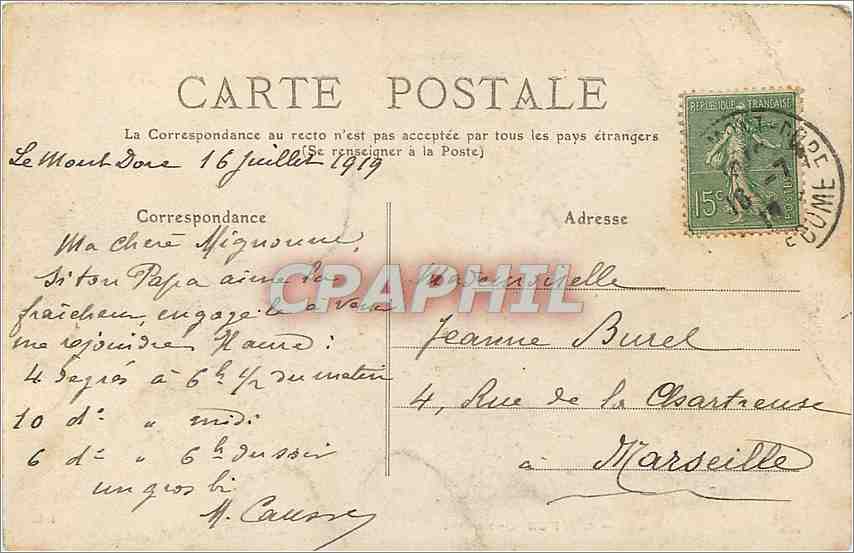 CARTE POSTALE
La Correspondance au recto n'est pas acceptée par tous les pays étrangers
(Se renseigner à la Poste)
RÉPUBLIQUE FRANÇAISE
15c
POSTES
Le Mont Dore 16 Juillet 1919
Correspondance
Ma chere Mignonne,
Si ton Papa aime la
fraîcheur, engage le a venir
me rejoindre
4 degrés à 6h 1/2 du matin
10 do " midi
6 do " 6h du soir
un gros bi
M. Causse
Adresse
Mademoiselle
Jeanne Burel
4, Rue de la Chartreuse
à Marseille
CPAPHIL